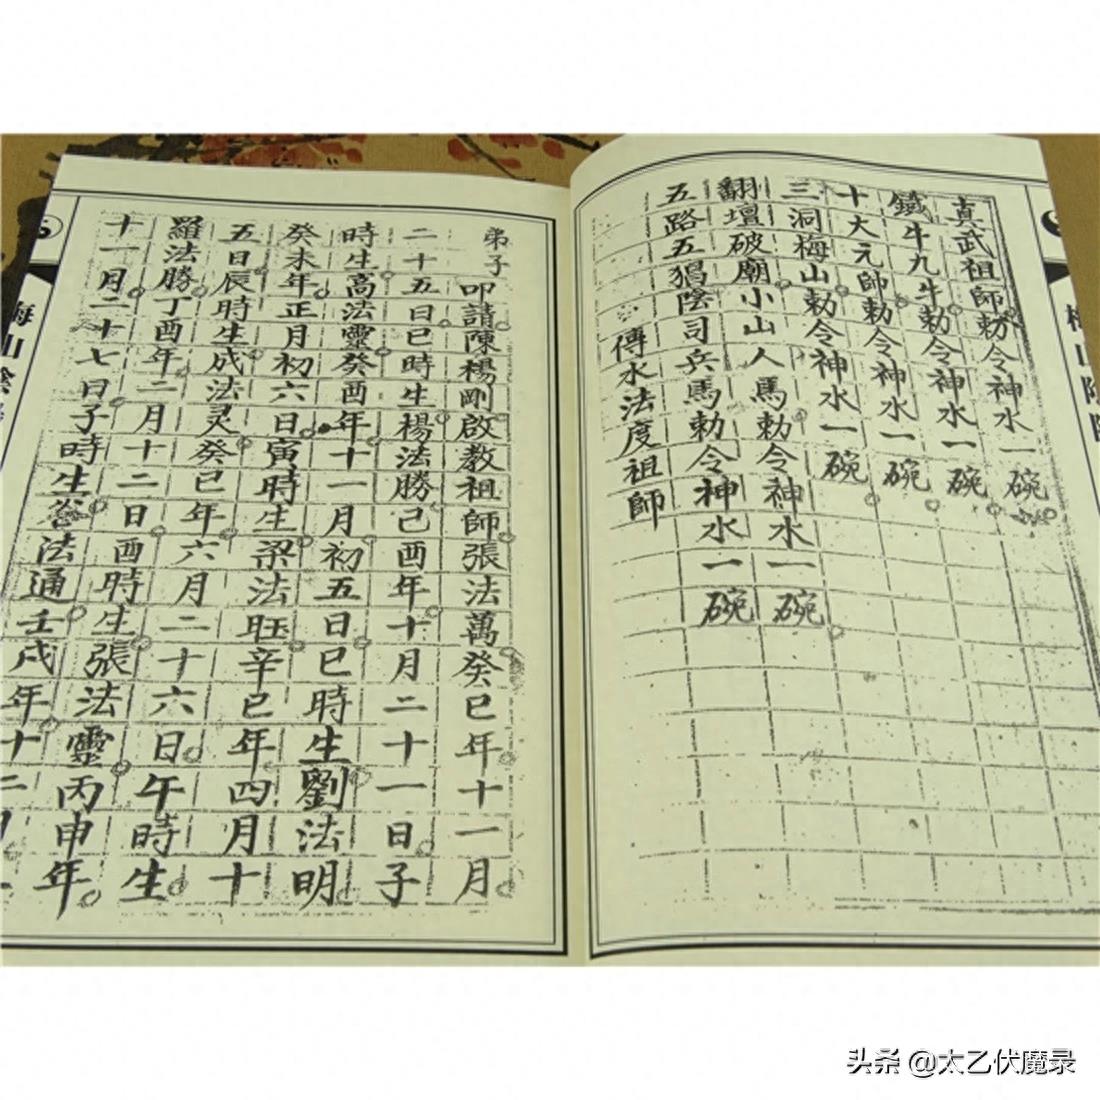 梅山陰
真武祖師勅令神水一碗
鐵牛九牛勅令神水一碗
十大元師勅令神水一碗
三洞梅山勅令神水一碗
翻壇破廟小山人馬勅令神水一碗
五路五猖陰司兵馬勅令神水一碗
傳水法度祖師
弟子叩請陳楊剛啟教祖師張法萬癸巳年十一月
二十五日巳時生楊法勝己酉年十月二十一日子
時生高法靈癸酉年十一月初五日巳時生劉法明
癸未年正月初六日寅時生梁法旺辛巳年四月十
五日辰時生成法灵癸巳年六月二十六日午時生
羅法勝丁酉年二月十二日酉時生張法靈丙申年
十一月二十七日子時生法通壬戌年十二月
梅山陰
头条 @太乙伏魔录